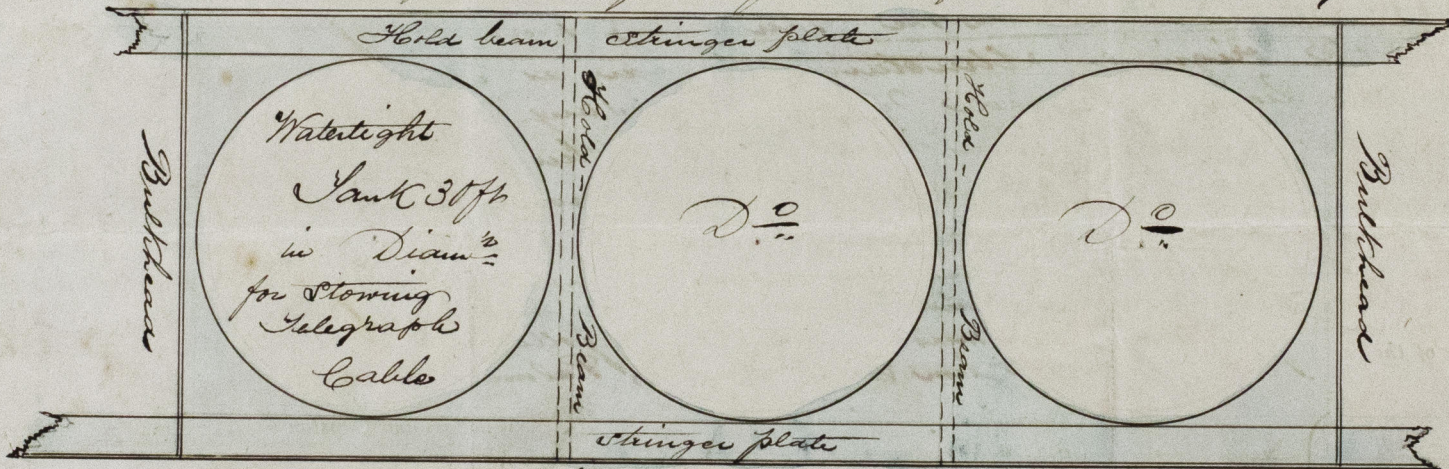 Hold beam stringer plate
Bulkhead
Watertight
Tank 30ft
in Diamr
for Stowing
Telegraph
Cable
Hold - Beam
Do
Hold - Beam
Do
Bulkhead
Stringer plate